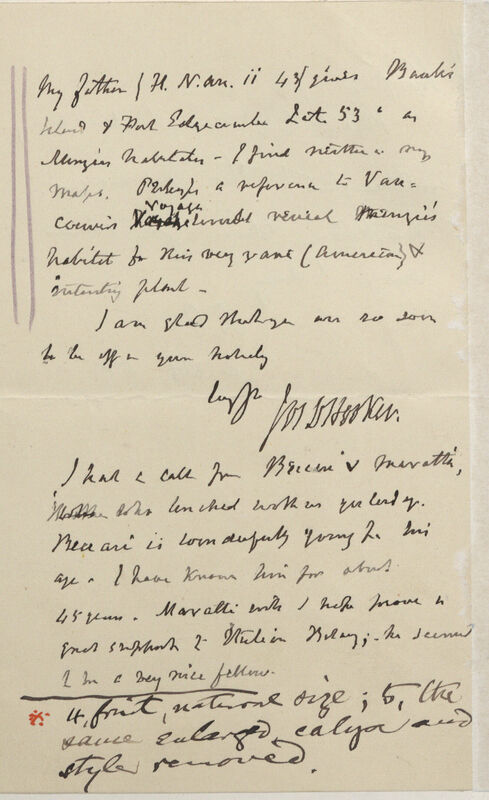 My father (Fl. N. Am. ii 43) gives Banks
Island & Port Edgecumbe Lat. 53° as
Menzies habitats – I find neither in my
maps. Perhaps a reference to Van=
couvers Voyage would reveal Menzies
habitat for this very rare (American) &
interesting plant –
I am glad that you are so soon
to be off on your holiday
Jos D Hooker.
I had a call from Beccari & Maratti,
who lunched with us yesterday.
Beccari is wonderfully young for his
age. I have known him for about
45 years. Maratti will I hope prove a
great support to Italian Botany; he seemed
to be a very nice fellow.
※ 4, fruit, natural size; 5, the
same enlarged, calyx and
styles removed.